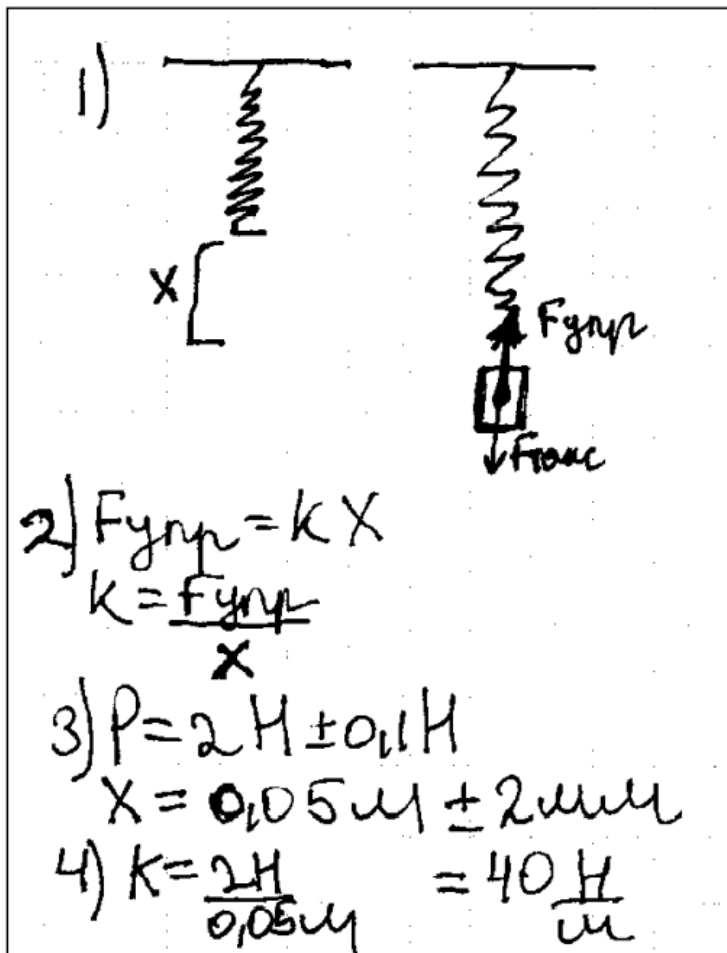 1)
X
Fупр
Fтяж
2) Fупр = k X
k = Fупр
X
3) P = 2 Н ± 0,1 Н
X = 0,05 м ± 2 мм
4) K = 2Н = 40 Н
0,05 м м